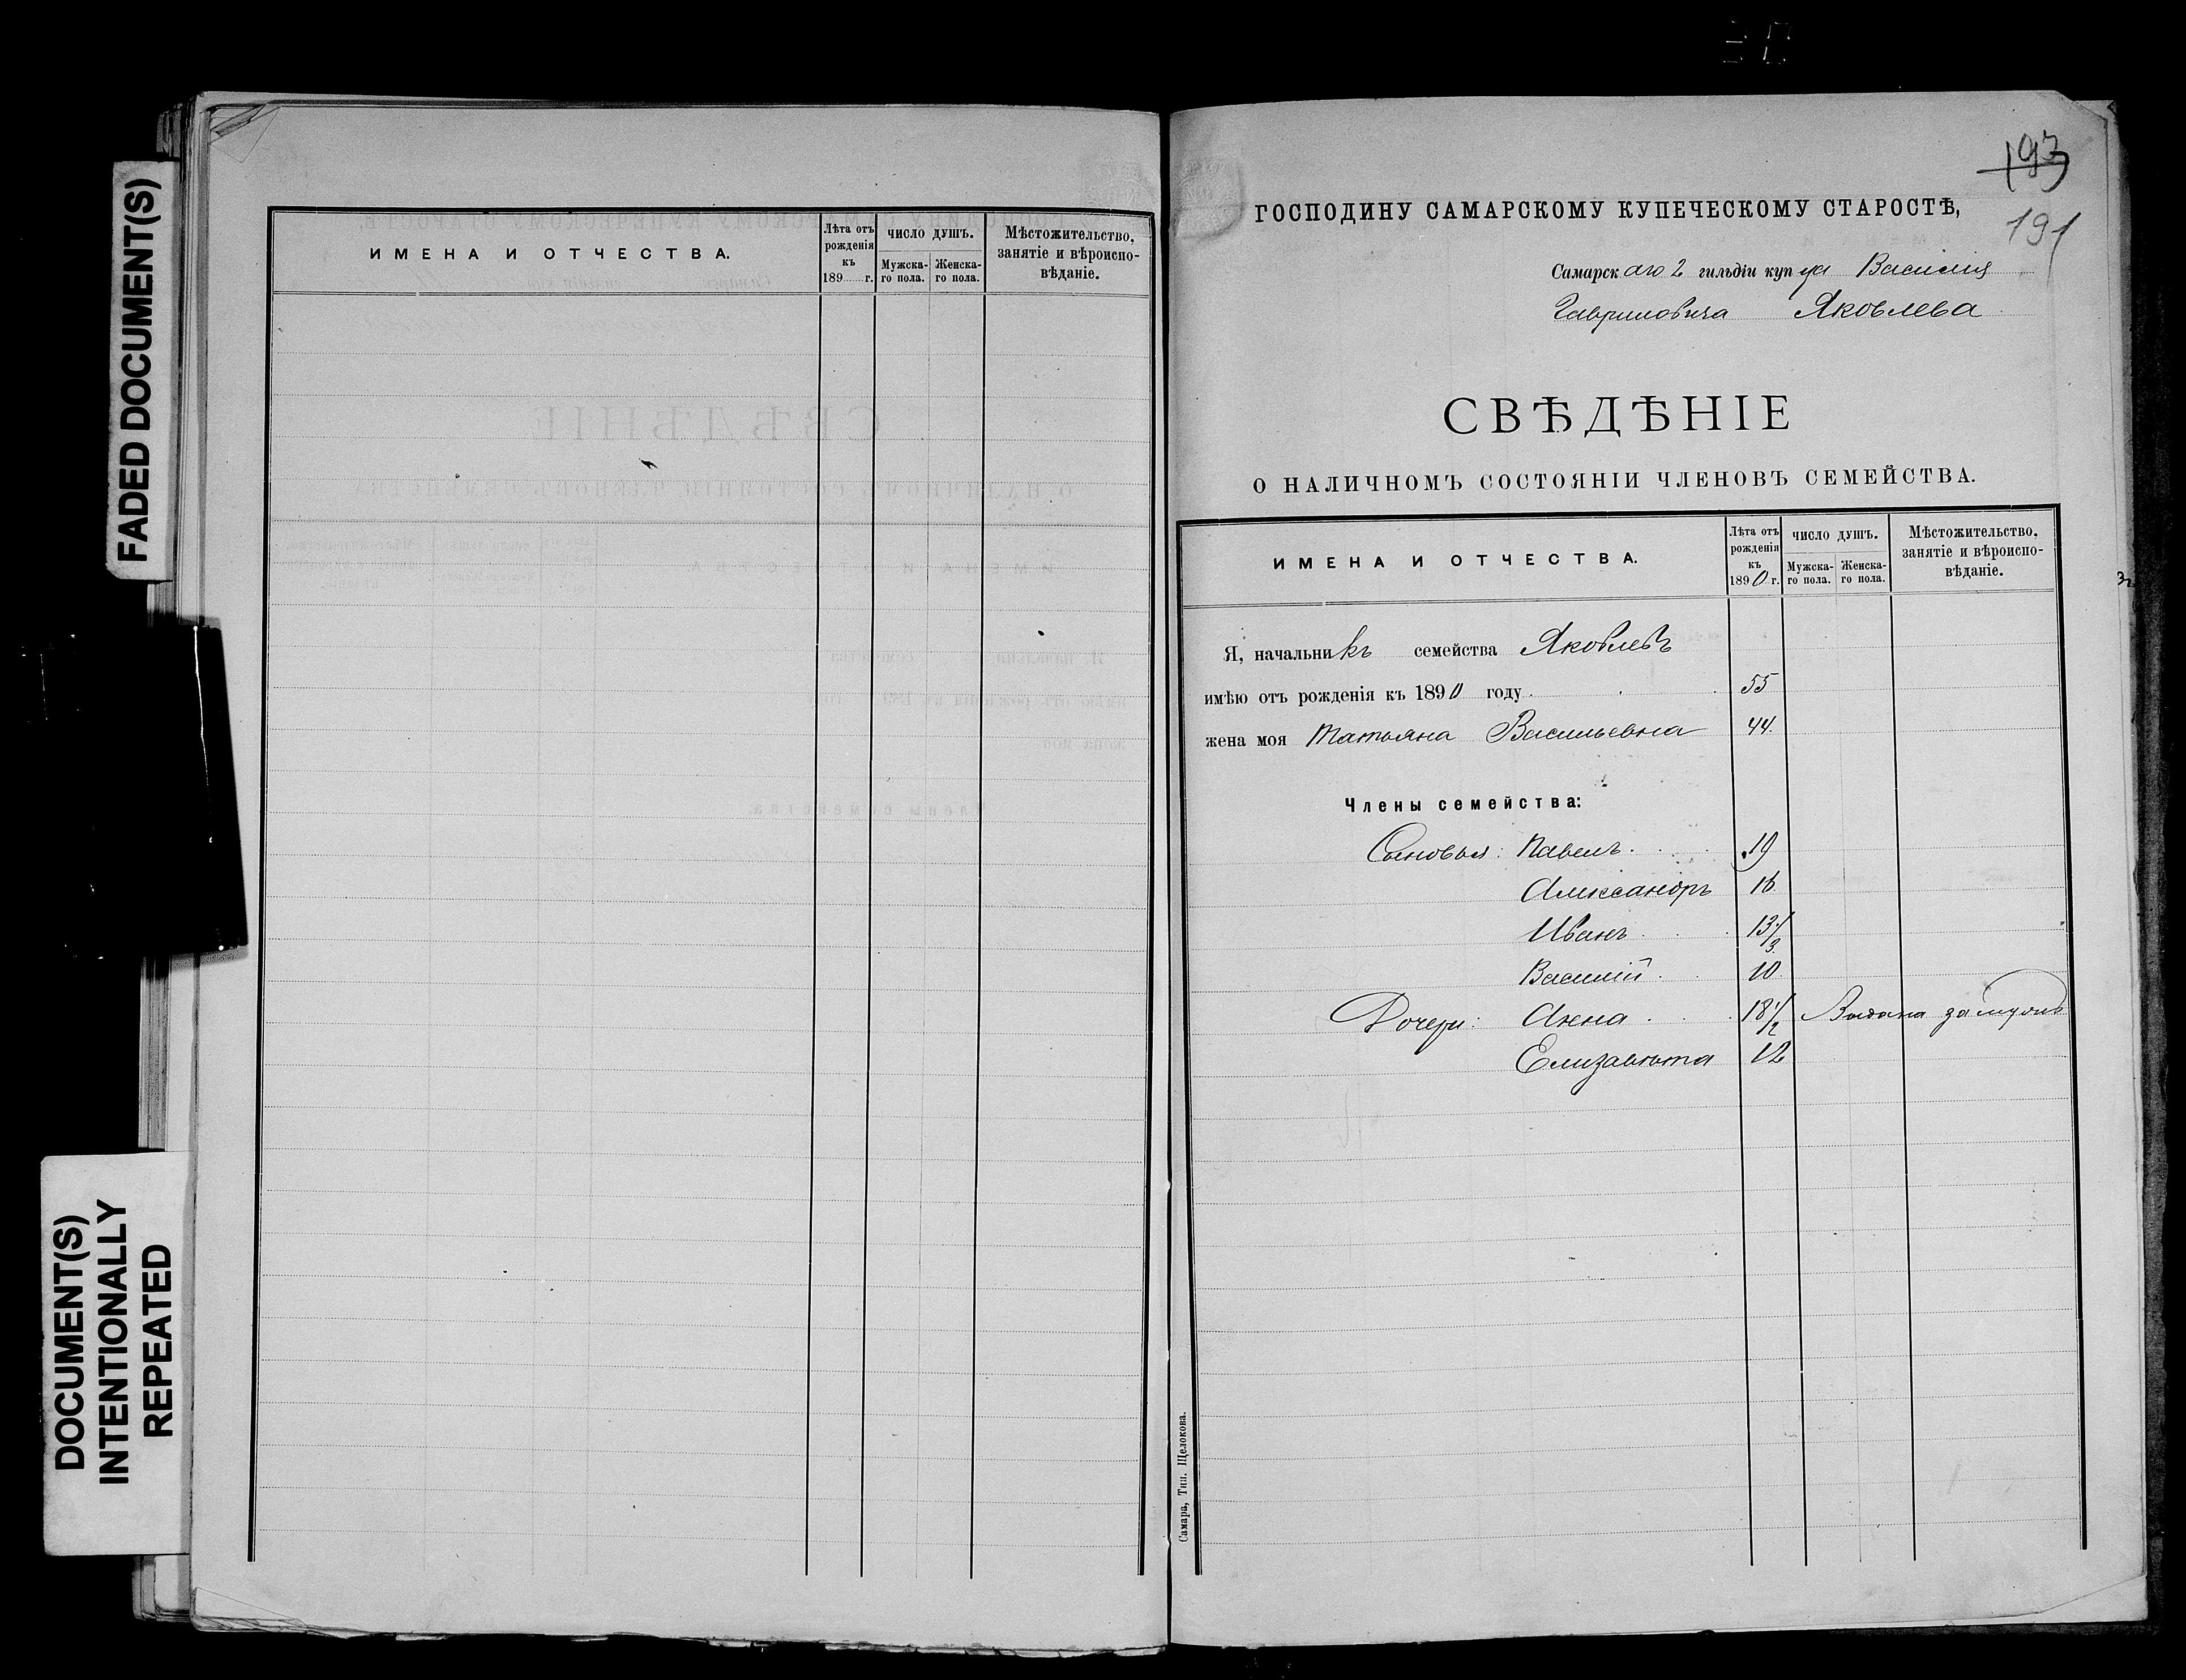 FADED DOCUMENT(S)
DOCUMENT(S)
INTENTIONALLY
REPEATED
ИМЕНА И ОТЧЕСТВА.
Лѣта отъ рожденія къ 189 г.
ЧИСЛО ДУШЪ.
Мужскаго пола.
Женскаго пола.
Мѣстожительство, занятіе и вѣроисповѣданіе.
193
191
ГОСПОДИНУ САМАРСКОМУ КУПЕЧЕСКОМУ СТАРОСТѢ,
Самарскаго 2 гильдіи купца Василія
Гавриловича Яковлева
СВѢДѢНІЕ
О НАЛИЧНОМЪ СОСТОЯНІИ ЧЛЕНОВЪ СЕМЕЙСТВА.
ИМЕНА И ОТЧЕСТВА.
Лѣта отъ рожденія къ 1890 г.
ЧИСЛО ДУШЪ.
Мужскаго пола.
Женскаго пола.
Мѣстожительство, занятіе и вѣроисповѣданіе.
Я, начальникъ семейства Яковлевъ
имѣю отъ рожденія къ 1890 году 55
жена моя Татьяна Васильевна 44.
Члены семейства:
Сыновья: Павелъ 19
Александръ 16
Иванъ 13 1/3
Василій 10
Дочери: Анна 18 1/2 Выдана замужъ
Елизавѣта 12
Самара, Тип. Щелокова.